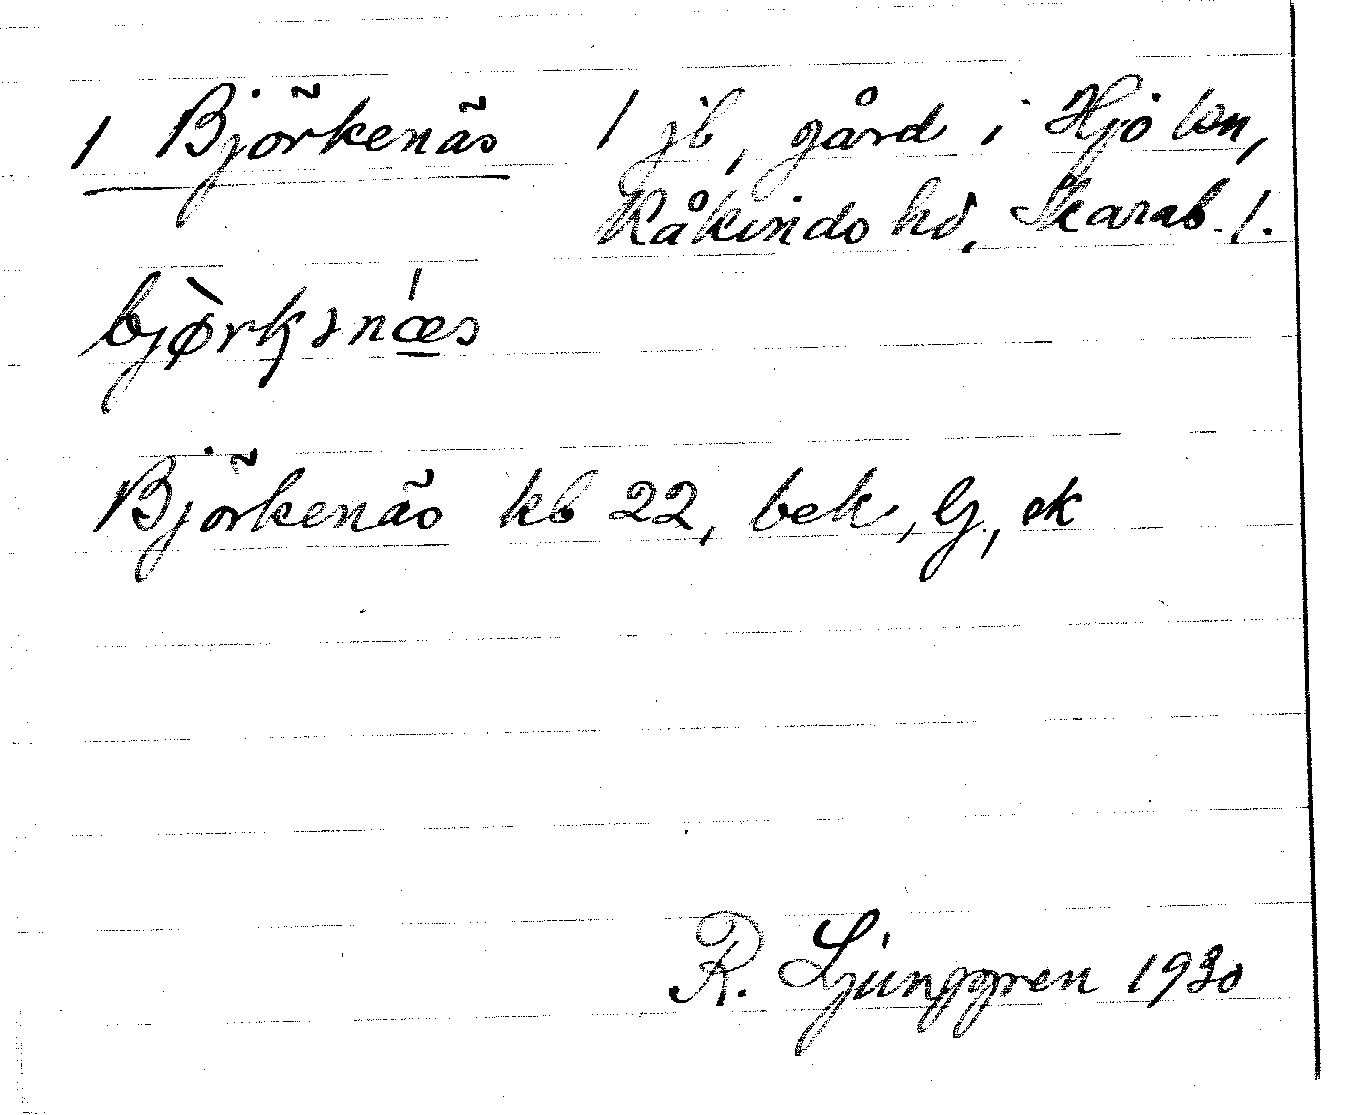 1 Björkenäs 1 jb, gård i Hjo lsn,
Kåkinds hd, Skarab. l.
bjørkȷnæs
Björkenäs kb 22, bek, Gj, ek
R. Ljunggren 1930